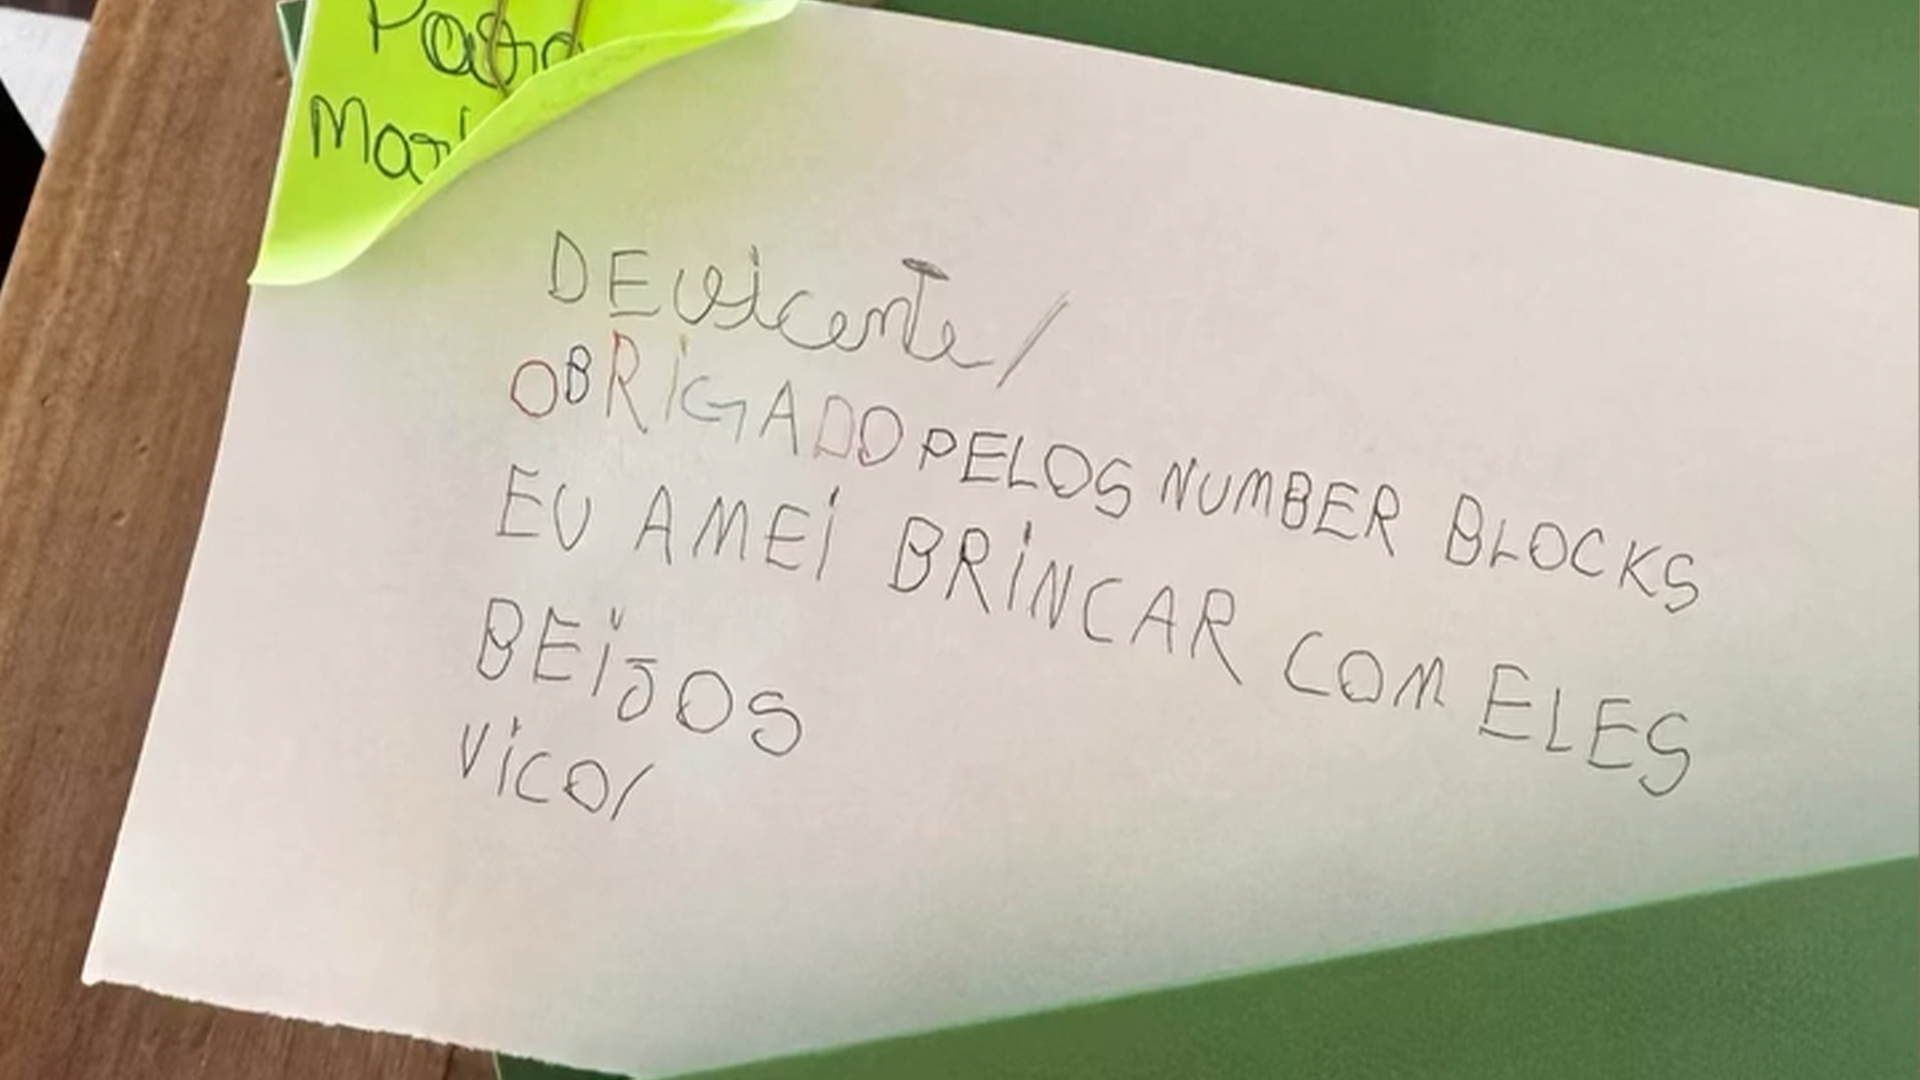 Para
DE vicente/
OBRIGADO PELOS NUMBER BLOCKS
EU AMEI BRINCAR COM ELES
BEIJOS
VICO/